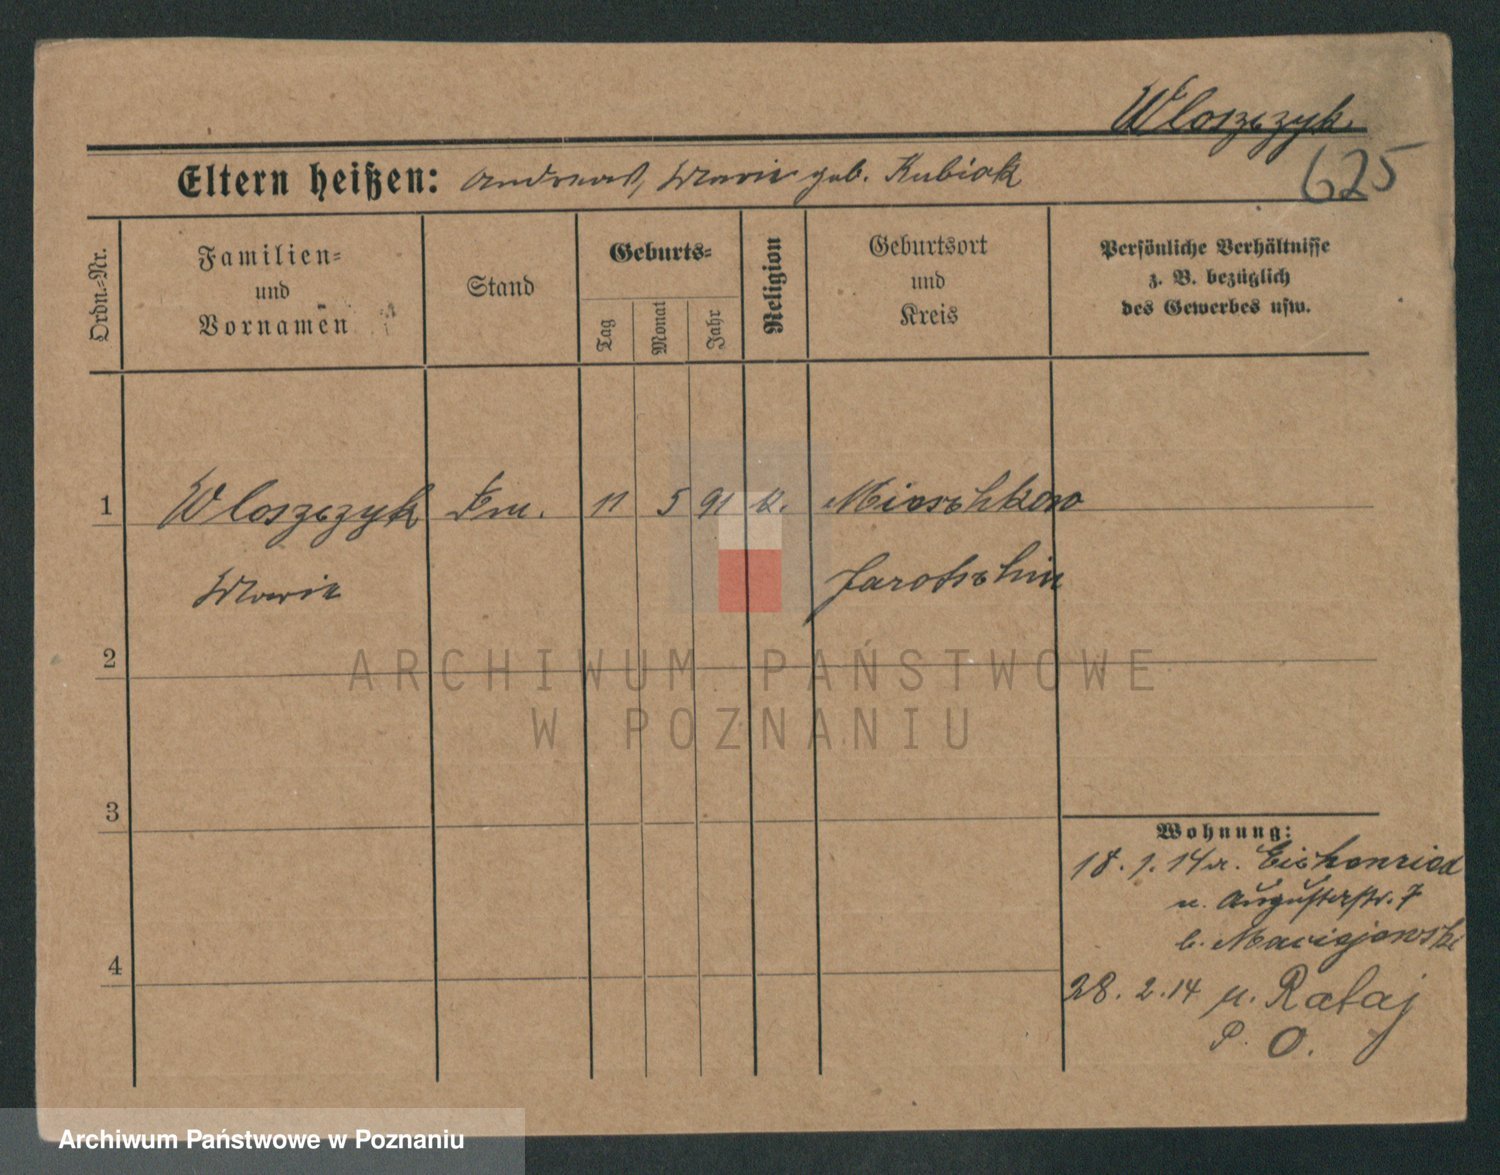 Wloszczyk
625
Eltern heißen: Andreas, Marie geb. Kubiak
Ordn.-Nr.
Familien-
und
Vornamen
Stand
Geburts-
Tag
Monat
Jahr
Religion
Geburtsort
und
Kreis
Persönliche Verhältnisse
z. B. bezüglich
des Gewerbes usw.
1 Wloszczyk 11 5 91 k. Mieschkow
Marie Jarotschin
2
ARCHIWUM PAŃSTWOWE
W POZNANIU
3
Wohnung:
18. 1. 14 Eichenried
n. Augustastr. 7
b. Maciejewski
4
28. 2. 14 n. Rataj
P. O.
Archiwum Państwowe w Poznaniu